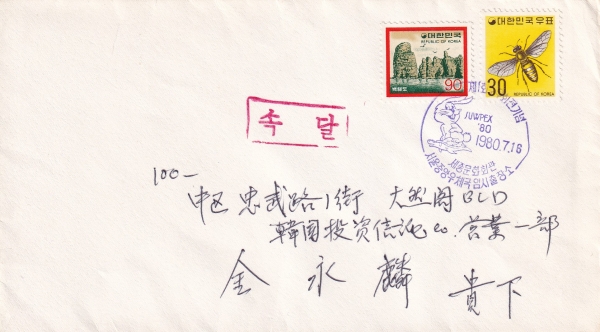 대한민국
REPUBLIC OF KOREA
백령도
90
대한민국우표
30
REPUBLIC OF KOREA
JUWPEX
'80
1980.7.18
세종문화회관
서울중앙우체국임시출장소
속달
100-
中区 忠武路1街 大然閣 BLD
韓国投資信託 co. 営業一部
金永麟 貴下